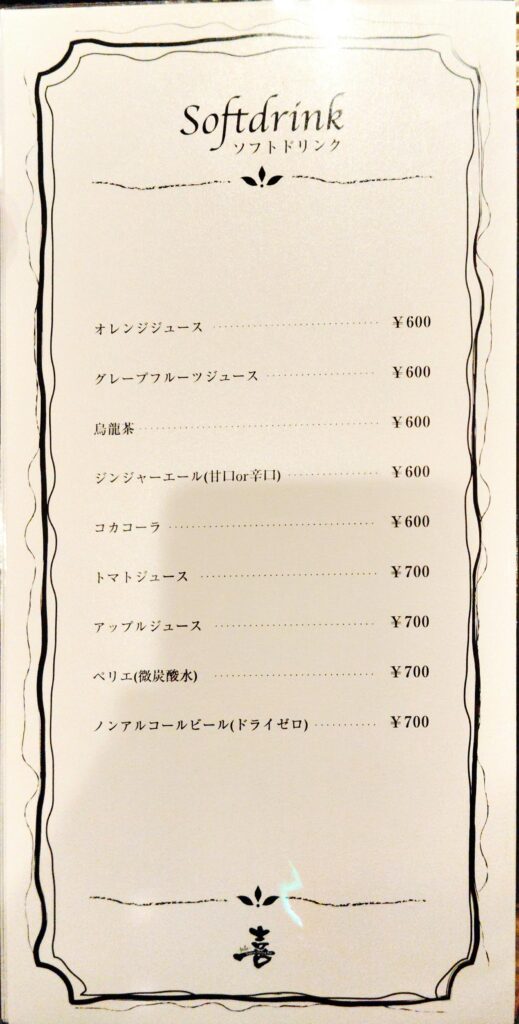 Softdrink
ソフトドリンク
オレンジジュース ¥600
グレープフルーツジュース ¥600
烏龍茶 ¥600
ジンジャーエール(甘口or辛口) ¥600
コカコーラ ¥600
トマトジュース ¥700
アップルジュース ¥700
ペリエ(微炭酸水) ¥700
ノンアルコールビール(ドライゼロ) ¥700
喜